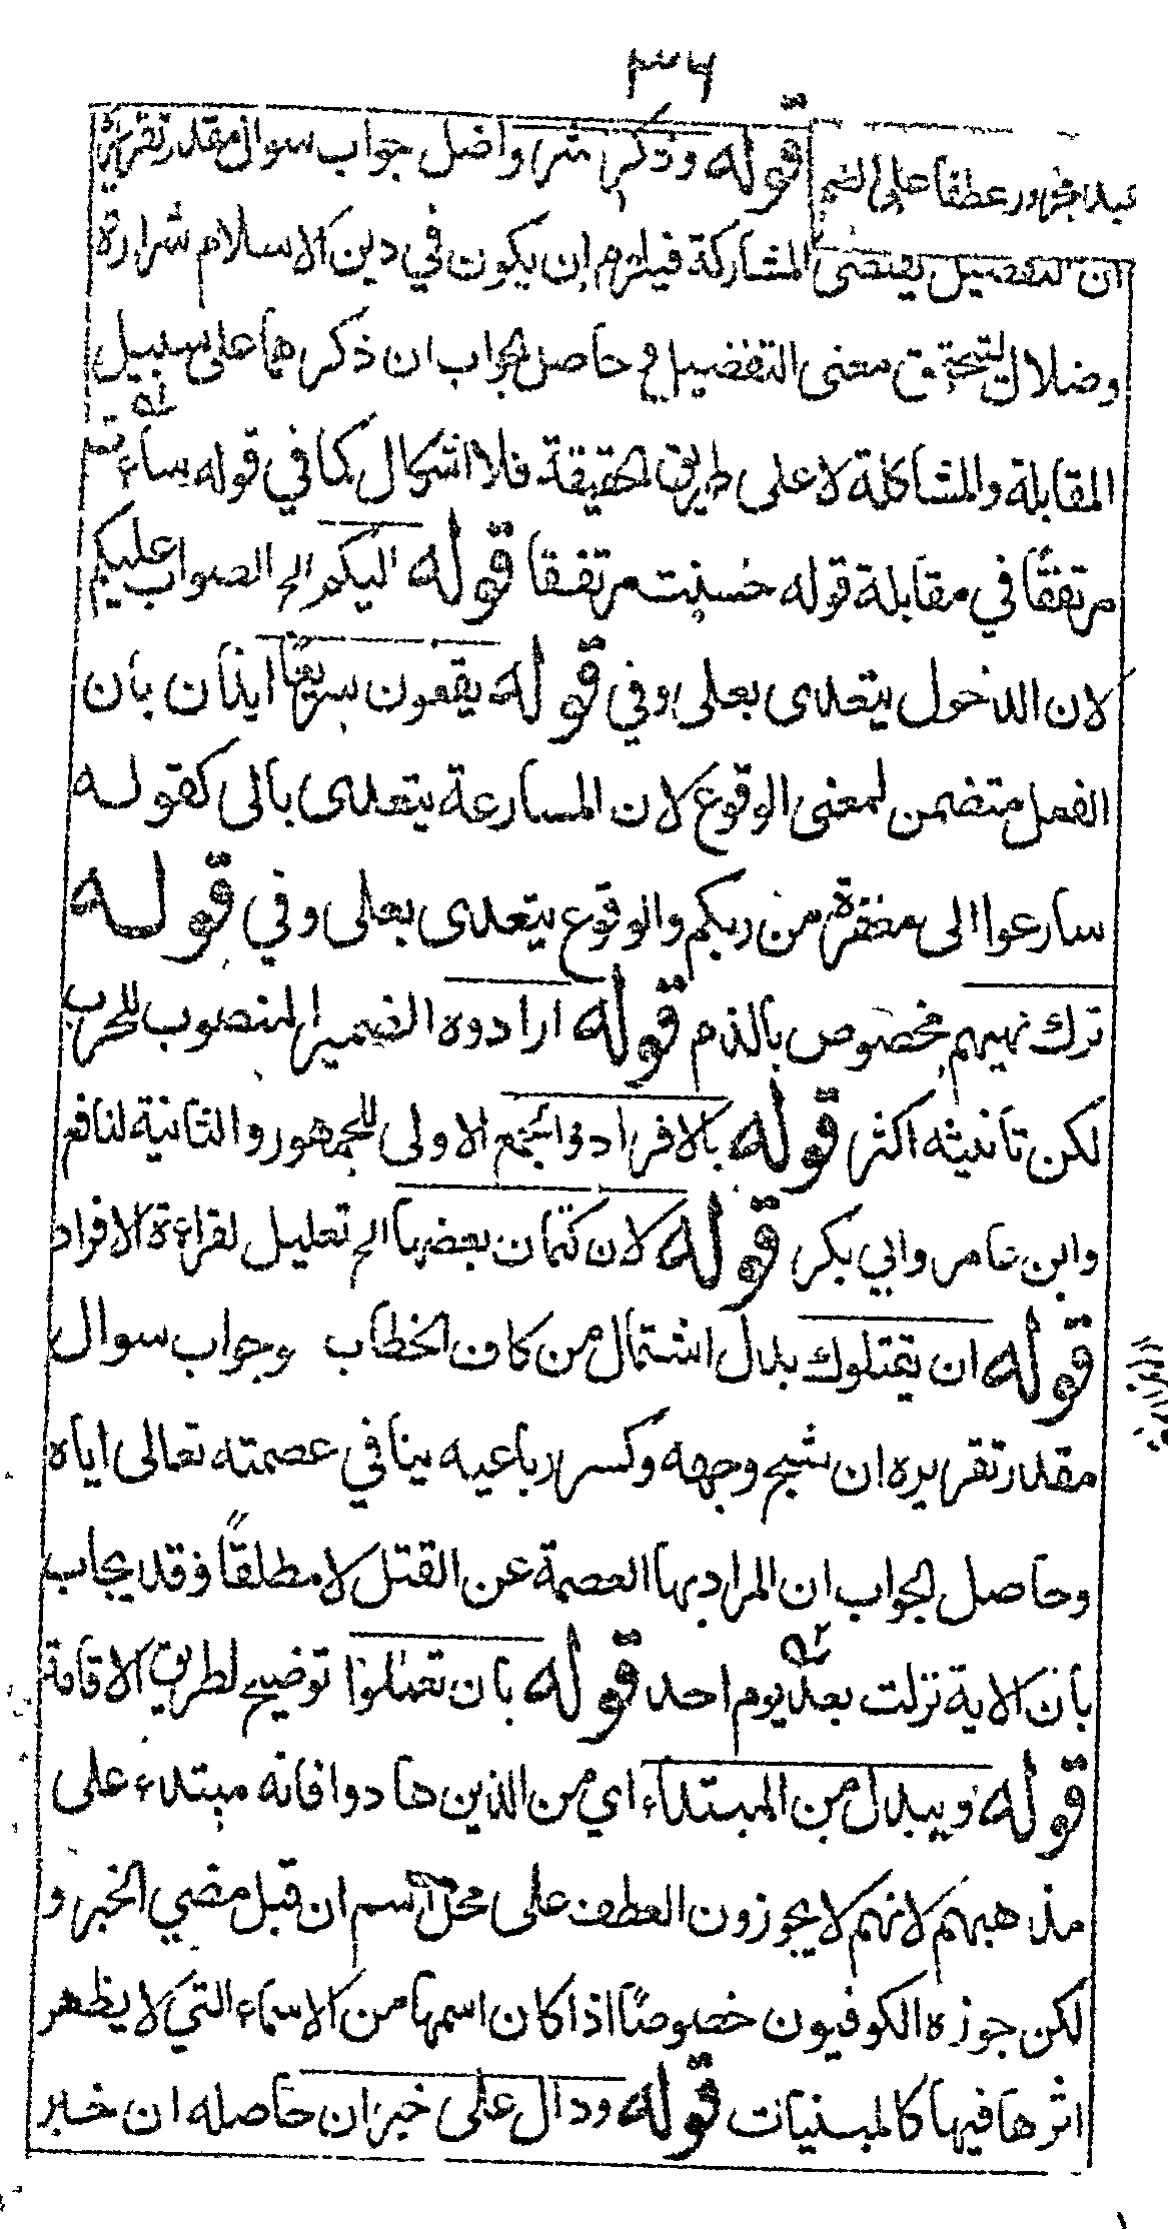 ٣٦
عبد مجرور عطفا على الضم
قوله وذكر شر واضل جواب سوال مقدر تقريره
ان التفضيل يقتضى المشاركة فيلزم ان يكون في دين الاسلام شرارة
وضلال ليتحقق معنى التفضيل و حاصل الجواب ان ذكرهما على سبيل
المقابلة والمشاكلة لا على طريق الحقيقة فلا اشكال كما في قوله ساءت
مرتفقًا في مقابلة قوله حسنت مرتفقا قوله اليكم الخ الصواب عليكم
لان الدخول يتعدى بعلى وفي قوله يقعون سريعًا ايذان بان
الفعل متضمن لمعنى الوقوع لان المسارعة يتعدى بالى كقوله
سارعوا الى مغفرة من ربكم والوقوع يتعدى بعلى وفي قوله
ترك نهيهم مخصوص بالذم قوله ارادوه الضمير المنصوب للحرب
لكن تانيثه اكثر قوله بالافراد والجمع الاولى للجمهور والثانية لنافع
وابن عامر وابي بكر قوله لان كتمان بعضها الخ تعليل لقراءة الافراد
قوله ان يقتلوك بدل اشتمال من كاف الخطاب وجواب سوال
مقدر تقريره ان شج وجهه وكسر رباعيه ينافي عصمته تعالى اياه
وحاصل الجواب ان المراد بها العصمة عن القتل لا مطلقًا وقد يجاب
بان الاية نزلت بعد يوم احد قوله بان تعملوا توضيح لطريق الاقامة
قوله ويبدل من المبتداء اي من الذين هادوا فانه مبتداء على
مذهبهم لانهم لا يجوزون العطف على محل اسم ان قبل مضي الخبر و
لكن جوزه الكوفيون خصوصًا اذا كان اسمها من الاسماء التي لا يظهر
اثرها فيها كالمبنيات قوله ودال على خبر ان حاصله ان خبر